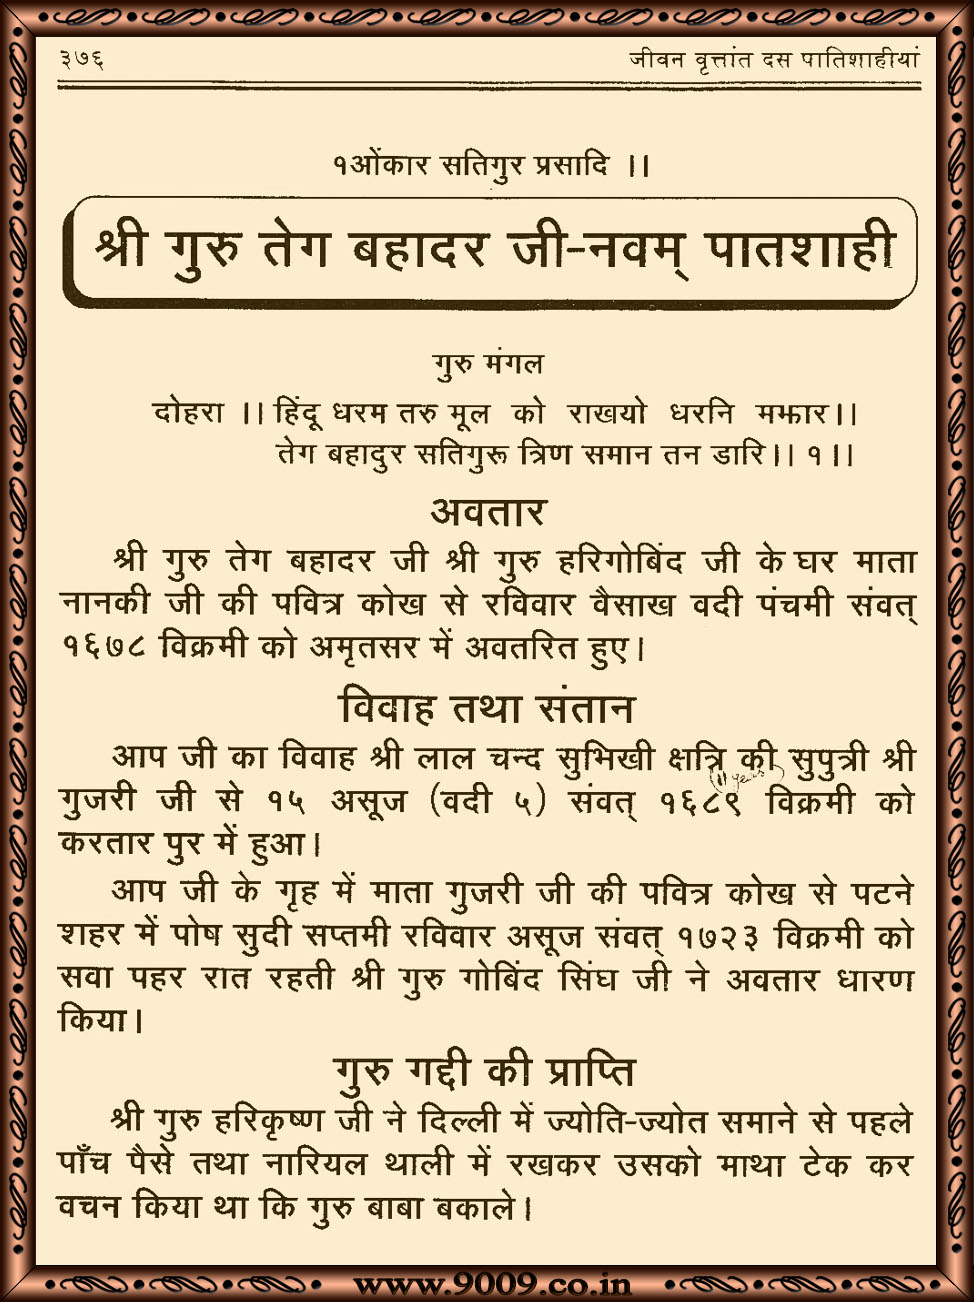 ३७६ जीवन वृत्तांत दस पातिशाहीयां
१ओंकार सतिगुर प्रसादि ।।
श्री गुरु तेग बहादर जी-नवम् पातशाही
गुरु मंगल
दोहरा ।। हिंदू धरम तरु मूल को राखयो धरनि मझार।।
तेग बहादुर सतिगुरू त्रिण समान तन डारि।। १।।
अवतार
श्री गुरु तेग बहादर जी श्री गुरु हरिगोबिंद जी के घर माता
नानकी जी की पवित्र कोख से रविवार वैसाख वदी पंचमी संवत्
१६७८ विक्रमी को अमृतसर में अवतरित हुए।
विवाह तथा संतान
आप जी का विवाह श्री लाल चन्द सुभिखी क्षत्रि की सुपुत्री श्री
गुजरी जी से १५ असूज (वदी ५) संवत् १६८९ विक्रमी को
करतार पुर में हुआ।
आप जी के गृह में माता गुजरी जी की पवित्र कोख से पटने
शहर में पोष सुदी सप्तमी रविवार असूज संवत् १७२३ विक्रमी को
सवा पहर रात रहती श्री गुरु गोबिंद सिंघ जी ने अवतार धारण
किया।
गुरु गद्दी की प्राप्ति
श्री गुरु हरिकृष्ण जी ने दिल्ली में ज्योति-ज्योत समाने से पहले
पाँच पैसे तथा नारियल थाली में रखकर उसको माथा टेक कर
वचन किया था कि गुरु बाबा बकाले।
www.9009.co.in